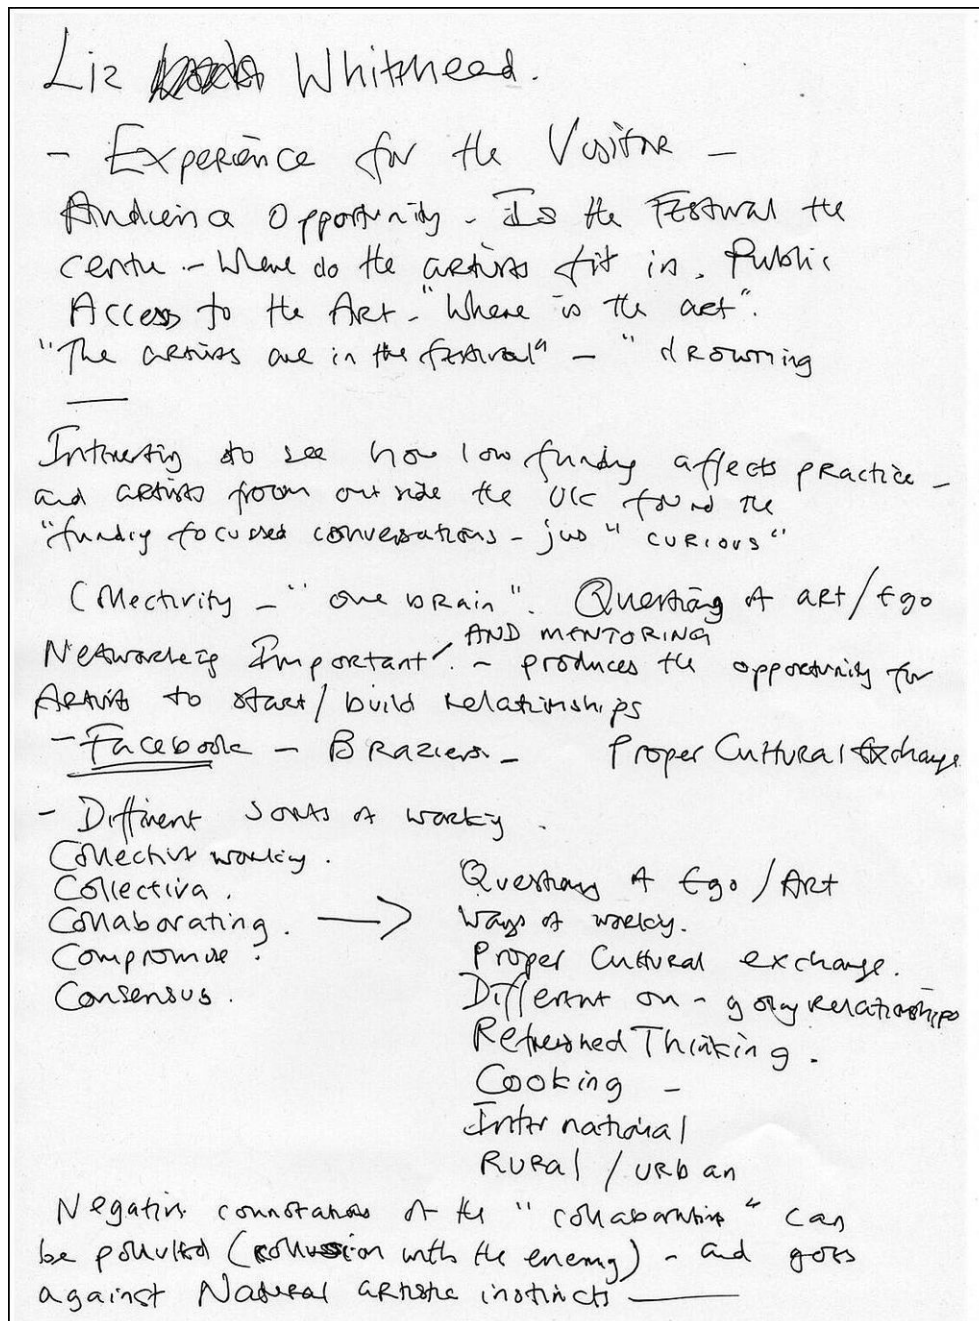 Liz Whitehead.
- Experience for the Visitor -
Audience Opportunity - Is the Festival the
centre - Where do the artists fit in. Public
Access to the Art - "Where is the art".
"The artists are in the festival" - "drowning
Interesting to see how low funding affects practice -
and artists from outside the UK found the
"funding focused conversations - jus "curious"
Collectivity - "one brain". Questions of art/Ego
AND MENTORING
Networking Important - produces the opportunity for
Artists to start/build relationships
- Facebook - Braziers - Proper Cultural Exchange
- Different sorts of working.
Collective working.
Collective.
Collaborating. →
Compromise.
Consensus.
Questions of Ego/Art
Ways of working.
Proper Cultural exchange.
Different on-going Relationships
Refreshed Thinking.
Cooking -
International
Rural/urban
Negative connotations of the "collaborative" can
be polluted (collusion with the enemy) - and goes
against Natural artistic instincts